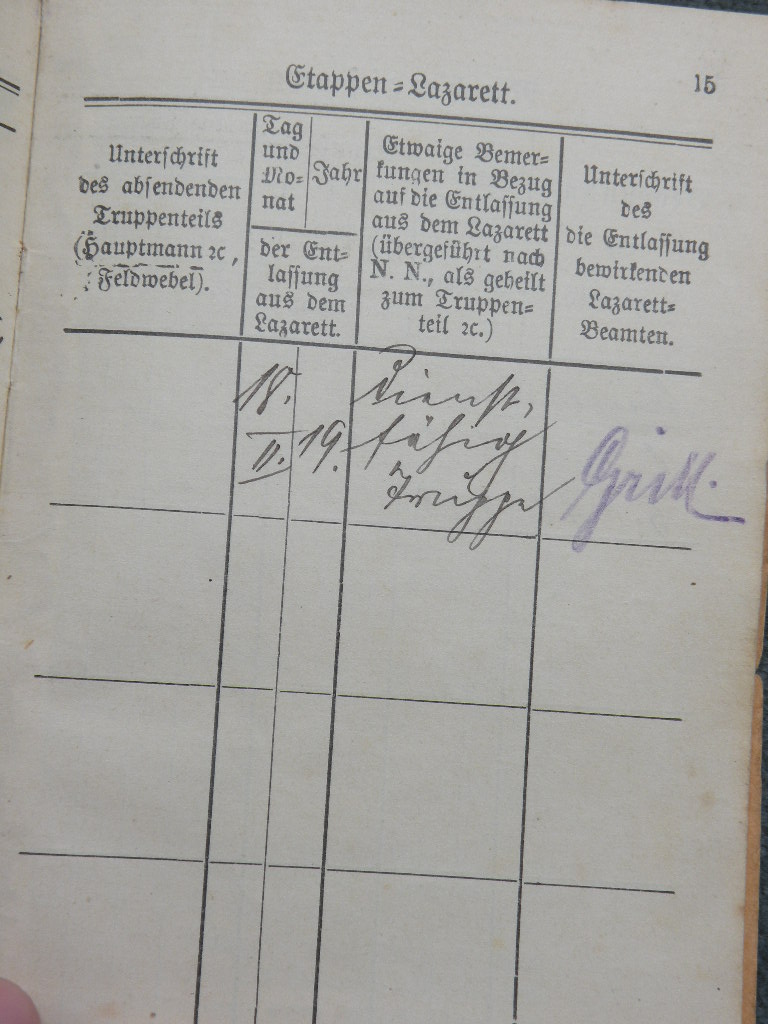 Etappen=Lazarett.
15
Unterschrift
des absendenden
Truppenteils
(Hauptmann ꝛc.,
Feldwebel).
Tag
und
Mo=
nat
Jahr
der Ent=
lassung
aus dem
Lazarett.
Etwaige Bemer=
kungen in Bezug
auf die Entlassung
aus dem Lazarett
(übergeführt nach
N. N., als geheilt
zum Truppen=
teil ꝛc.)
Unterschrift
des
die Entlassung
bewirkenden
Lazarett=
Beamten.
18.
II.
19.
dienst,
fähig
Truppe